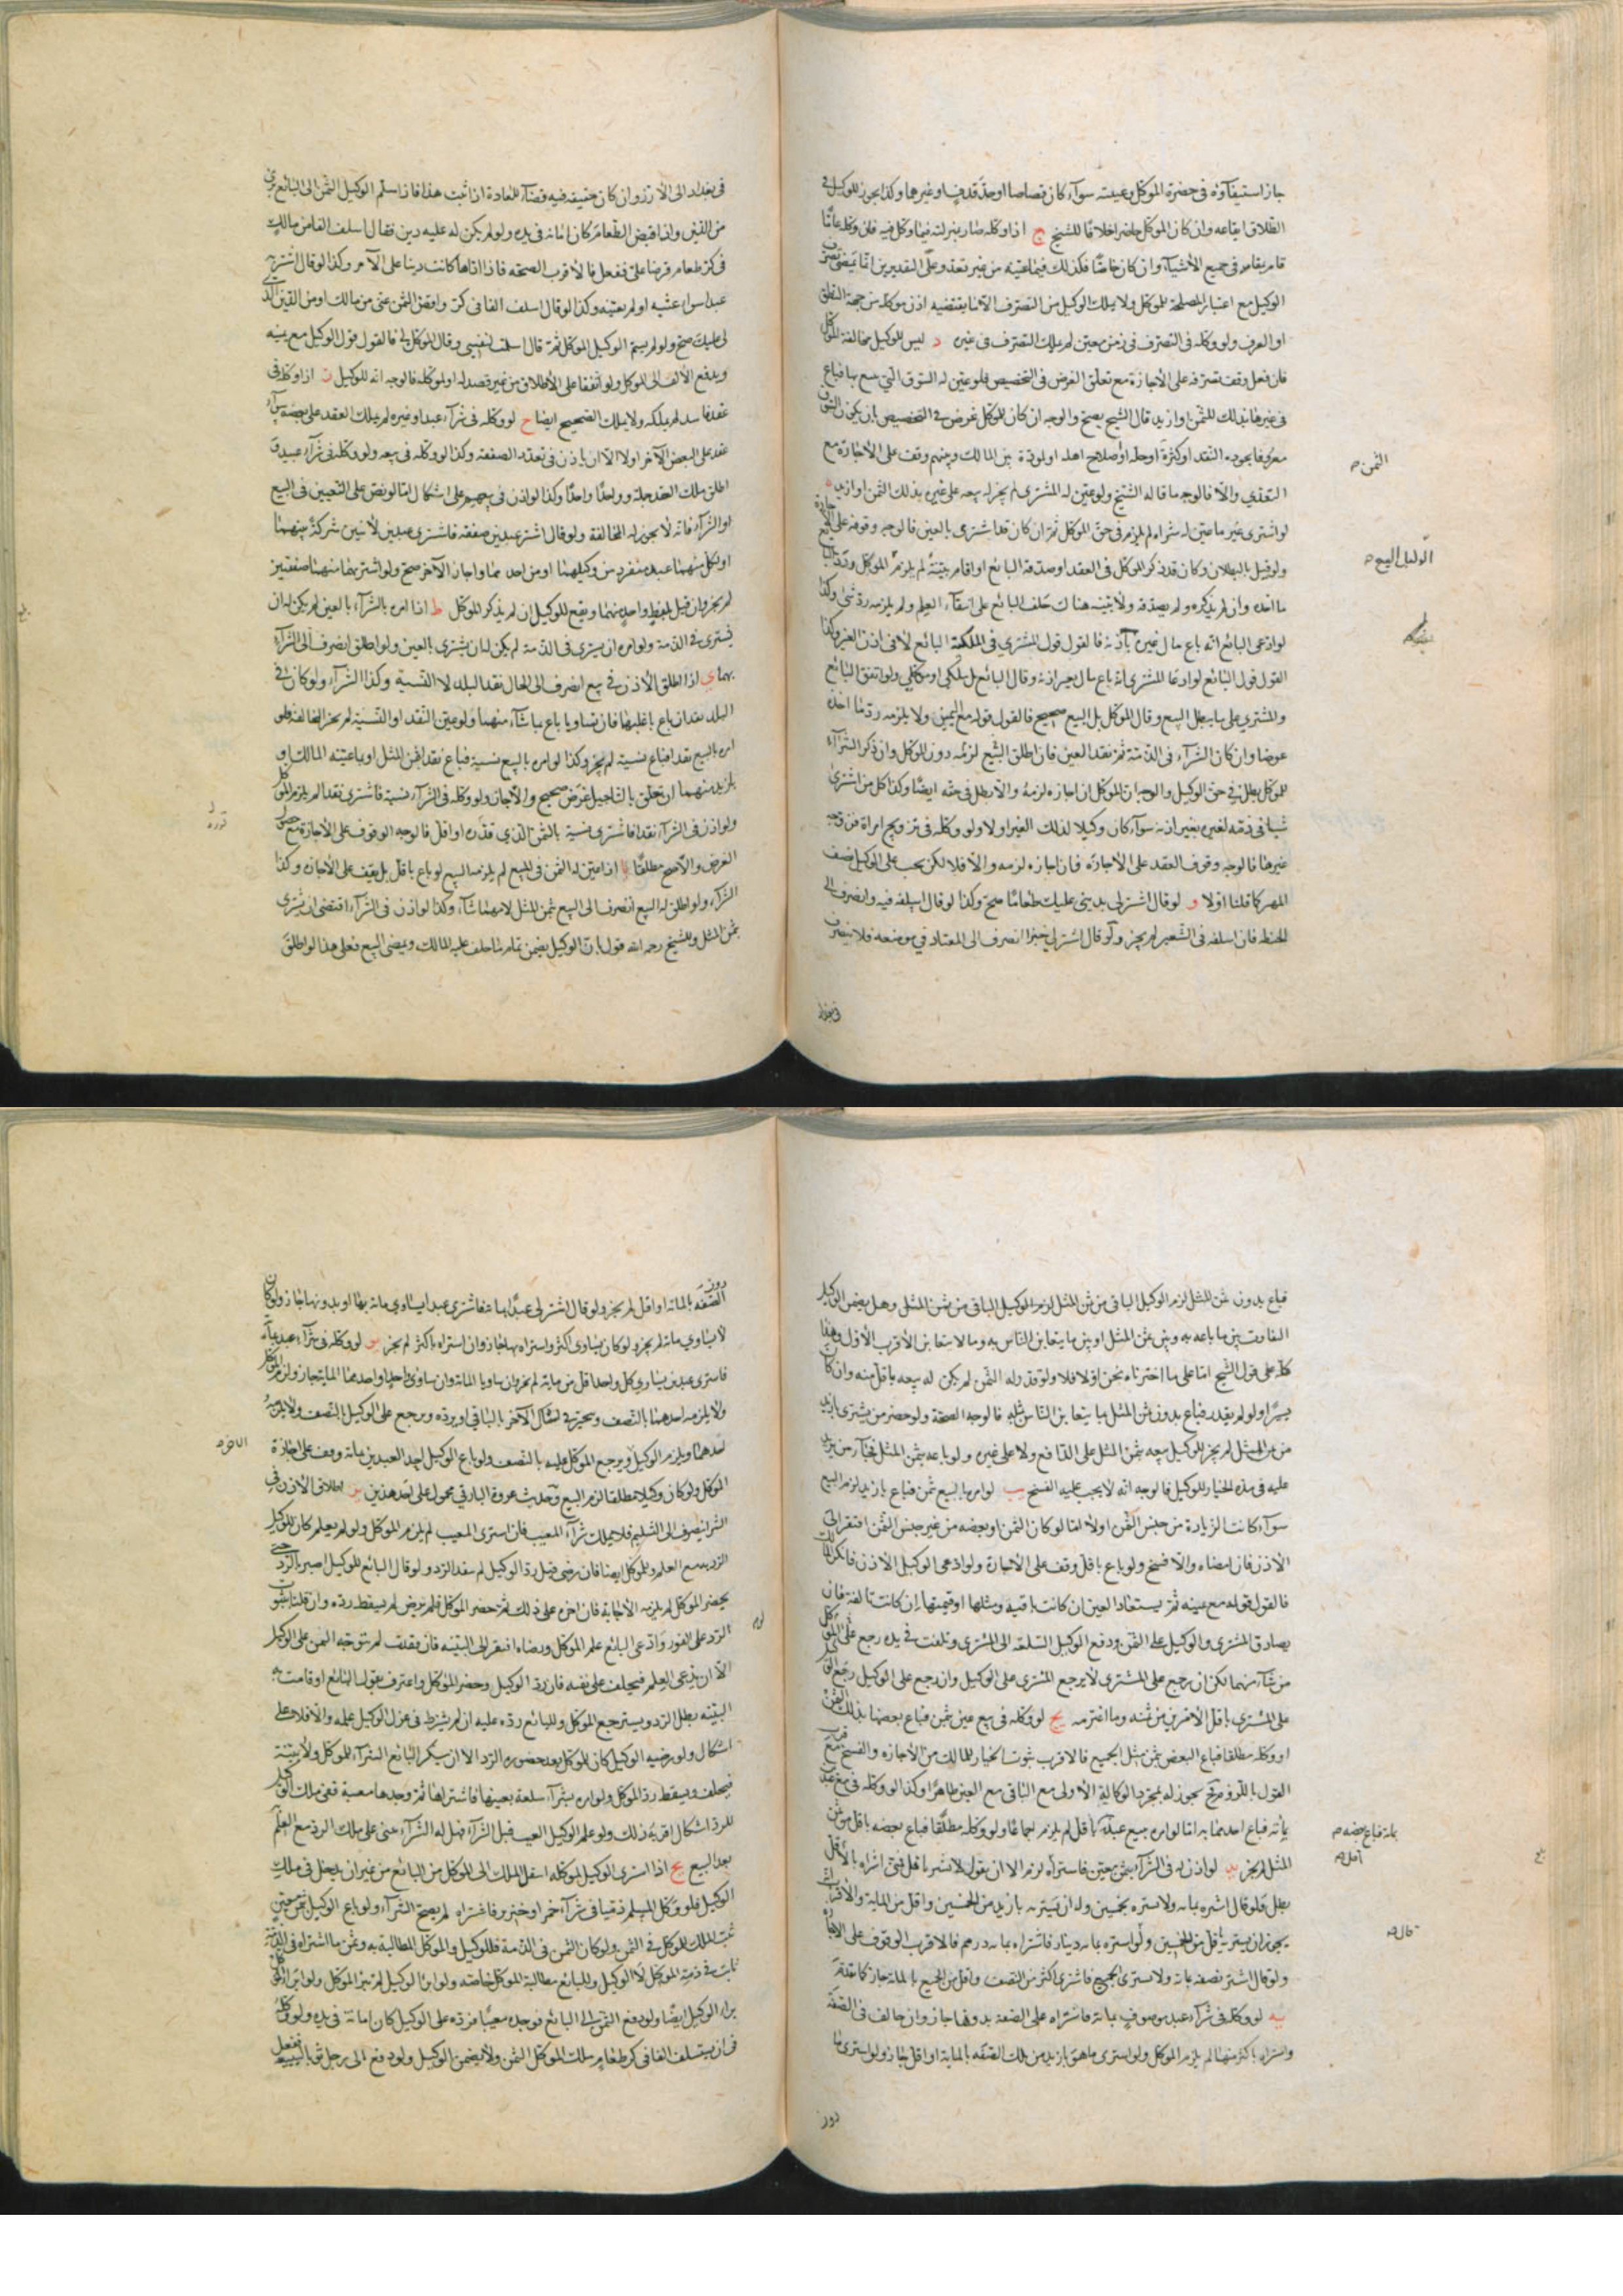 جاز استيفاؤه في حضرة الموكل وغيبته سواء كان قصاصا او حدّ قذف او غيرهما وكذا يجوز للوكيل في
الطلاق ايقاعه وان كان الموكل حاضرا خلافا للشيخ ج اذا وكله صار بمنزلته فيما وكل فيه فان وكله عامّا
قام مقامه في جميع الأشياء وان كان خاصّا فكذلك فيما عيّنه من غير تعدّ وعلى التقديرين انما يمضى تصرف
الوكيل مع اعتبار المصلحة للموكل ولا يملك الوكيل من التصرف الا ما يقتضيه اذن موكله من جهة النطق
او العرف ولو وكله في التصرف في زمن معين لم يملك التصرف في غيره د ليس للوكيل مخالفة الموكل
فان فعل وقف تصرفه على الأجازة مع تعلّق الغرض في التخصيص فلو عيّن له السوق التي يبيع بها فباع
في غيرها بذلك الثمن او ازيد قال الشيخ يصح والوجه ان كان للموكل غرض في التخصيص بان يكون السوق
معروفا بجودة النقد او كثرة او حلّه او صلاح اهله او لمودة بين المالك وبينهم وقف على الأجازة مع
التعدي والّا فالوجه ما قاله الشيخ ولو عيّن له المشتري لم يجز له بيعه على غيره بذلك الثمن او ازيد ه
لو اشترى غير ما عيّن له شراه لم يلزم في حق الموكل ثم ان كان قد اشترى بالعين فالوجه وقوفه على الأجازة
ولو قيل بالبطلان وكان قد ذكر الموكل في العقد او صدّقه البائع او اقام بيّنة لم يلزم الموكل وردّ البائع
ما اخذه وان لم يذكره ولم يصدّقه ولا بيّنة هناك حلف البائع على انتفاء العلم ولم يلزمه ردّ شيء وكذا
لو ادعى البائع انه باع مال غيره بأذنه فالقول قول المشتري في البائع لا في اذن الغير وكذا
القول قول البائع لو ادعا المشتري انه باع مال بغير اذنه وقال البائع بل ملكي او موكلي ولو اتفق البائع
والمشتري على ما يبطل البيع وقال الموكل بل البيع صحيح فالقول قوله مع اليمين ولا يلزمه ردّ ما اخذه
عوضا وان كان الشراء في الذمّة ثم نقد العين فان اطلق الشيء لزمه دون الموكل وان ذكر الشراء
للموكل بطل في حق الوكيل والوجه ان الموكل ان اجازه لزمه والا بطل في حقه ايضا وكذا كل من اشترى
شيئا في ذمّه لغيره بغير اذنه سواء كان وكيلا لذلك الغير او لا ولو وكله في تزويج امراة فزوجه
غيرها فالوجه وقوف العقد على الأجازه فان اجازه لزمه والا فلا لكن يجب على الوكيل نصف
المهر كما قلنا اوّلا و لو قال اشتر لي بديني عليك طعامًا صح وكذا لو قال اسلفه فيه وانصرف الى
الحنطه فان اسلفه في الشعير لم يجز ولو قال اشتر لي خبزا انصرف الى المعتاد في موضعه فلا ينصرف
الثمن م
الوكيل البيع م
في بغداد
في بغداد الى الأرز وان كان حقيقه فيه قضاء للعادة اذا ثبت هذا فاذا سلّم الوكيل الثمن الى البائع برئ
من الدين واذا قبض الطعام كان امانه في يده ولو لم يكن له عليه دين فقال اسلف الفا من مالك
في كرّ طعام قرضا علىّ ففعل فالأقرب الصحه فاذا اداها كانت دينا على الآمر وكذا لو قال اشتر لي
عبدا سواء عيّنه او لم يعيّنه وكذا لو قال اسلف الفا في كرّ واقض الثمن عني من مالك او من الدين الذي
لي عليك صح ولو لم يسمّ الوكيل الموكل ثم قال اسلفت لنفسي وقال الموكل لي فالقول قول الوكيل مع يمينه
ويدفع الألف الى الموكل ولو اتفقا على الأطلاق من غير قصد له او لموكله فالوجه انه للوكيل ز اذا وكله في
عقد فاسد لم يملكه ولا يملك الصحيح ايضا ح لو وكله في شراء عبد او غيره لم يملك العقد على بعضه سواء
عقد على البعض الآخر اولا الا ان ياذن في تعدد الصفقة وكذا لو وكله في بيعه ولو وكله في شراء عبيد و
اطلق ملك العقد جملة وواحدًا واحدًا وكذا لو اذن في بيعهم على اشكال امّا لو نصّ على التعيين في البيع
او الشراء فانه لا يجوز له المخالفة ولو قال اشتر عبدين صفقه فاشترى عبدين لأثنين شركة بينهما
او لكلّ منهما عبد منفرد من وكيلهما او من احدهما واجاز الآخر صح ولو اشتريهما منهما صفقتين
لم يجز وان قبل بلفظ واحد منهما ويقع للوكيل ان لم يذكر الموكل ط اذا امره بالشراء بالعين لم يكن له ان
يشترى في الذمة ولو امره ان يشترى في الذمة لم يكن له ان يشترى بالعين ولو اطلق انصرف الى الشراء
بهما ي اذا اطلق الأذن في بيع انصرف الى الحال نقد البلد لا النسية وكذا الشراء ولو كان في
البلد نقدان باع باغلبهما فان تساويا باع بما شاء منهما ولو عيّن النقد او النسية لم يجز المخالفة فلو
امره بالبيع نقدا فباع نسية لم يجز وكذا لو امره بالبيع نسية فباع نقدا بثمن المثل او بما عيّنه المالك او
بازيد منهما ان تعلق بالتاجيل غرض صحيح والا جاز ولو وكله في الشراء نسية فاشترى نقدا لم يلزم الموكل
ولو اذن في الشراء نقدا فاشترى نسية بالثمن الذي قدّره او اقل فالوجه الوقوف على الأجازة مع حصول
الغرض والا صح مطلقا يا اذا عيّن له الثمن في البيع لم يلزمه البيع لو باع باقل بل يقف على الأجازه وكذا
الشراء ولو اطلق له البيع انصرف الى البيع بثمن المثل لا مهما شاء وكذا لو اذن في الشراء اقتضى ان يشترى
بثمن المثل وللشيخ رحمه الله قول بان الوكيل يضمن تمام ما حلف عليه المالك ويمضى البيع فعلى هذا لو اطلق
فباع بدون ثمن المثل لزم الوكيل الباقي من ثمن المثل وهل يضمن الوكيل
التفاوت بين ما باعه به وبين ثمن المثل او بين ما يتغابن الناس به وما لا يتغابن الأقرب الأول وهذا
كلّه على قول الشيخ امّا على ما اخترناه نحن اوّلا فلا ولو قدّر له الثمن لم يكن له بيعه باقل منه وان كان
يسيرًا ولو لم يقدر فباع بدون ثمن المثل بما يتغابن الناس بمثله فالوجه الصحّة ولو حضر من يشتري بازيد
من ثمن المثل لم يجز للوكيل بيعه بثمن المثل على الدافع ولا على غيره ولو باعه بثمن المثل فجاء من يزيد
عليه في مدة الخيار للوكيل فالوجه انه لا يجب عليه الفسخ يب لو امره بالبيع بثمن فباع بازيد لزم البيع
سواء كانت الزيادة من جنس الثمن اولا امّا لو كان الثمن او بعضه من غير جنس الثمن افتقر الى
الأذن فان امضاه والا فسخ ولو باع باقل وقف على الأجازة ولو ادعى الوكيل الأذن فانكر المالك
فالقول قوله مع يمينه ثم يستعاد العين ان كانت باقيه ومثلها او قيمتها ان كانت تالفة فان
تصادق المشتري والوكيل على الثمن ودفع الوكيل السلعه الى المشتري وتلفت في يده رجع على الموكل
من شاء منهما لكن ان رجع على المشتري لا يرجع المشتري على الوكيل وان رجع على الوكيل رجع الوكيل
على المشتري باقل الأمرين من ثمنه وما اغترمه يج لو وكله في بيع عين بثمن فباع بعضها بذلك الثمن
او وكله مطلقا فباع البعض بثمن مثل الجميع فالأقرب ثبوت الخيار للمالك من الأجازه والفسخ مع قرب
القول باللزوم يجوز له بمجرد الوكالة الأولى بيع الباقي مع العين ظاهرًا وكذا لو وكله في بيع عبدين
بمأة فباع احدهما بها امّا لو امره ببيع عبد باقل لم يلزم اجماعًا ولو وكله مطلقًا فباع بعضه باقل من ثمن
المثل لم يجز يد لو اذن له في الشراء بثمن معيّن فاشتراه لزم الا ان يقول لا تشتر باقل فمتى اشراه بالأقل
بطل ولو قال اشره بماة ولا تشتره بخمسين وله ان يشتريه بازيد من الخمسين واقل من الماية والأقرب
يجوز ان يشتريه باقل من الخمسين ولو اشتره بماة دينار فاشتراه بماة درهم فالأقرب الوقوف على الأجازة
ولو قال اشتر نصفه بماة ولا تشتري الجميع فاشترى اكثر من النصف واقل من الجميع بالماة جاز كما تقدّم
يه لو وكله في شراء عبد موصوف بماة فاشتراه على الصفة بدونها جاز وان خالف في الصفة
واشتراه باكثر منها لم يلزم الموكل ولو اشترى ما هو بازيد من تلك الصفة بالماية او اقل جاز ولو اشترى ما
بماة فباع بعضه م
اقل م
قال م
دون
دون
الصفة بالماة او اقل لم يجز ولو قال اشتر لي عبدًا بماة فاشترى عبدا يساوي ماة بها او بدونها جاز ولو كان
لا يساوي ماة لم يجز ولو كان يساوى اكثر واشتراه بها جاز وان اشتراه باكثر لم يجز يو لو وكله في شراء عبد بماة
فاشترى عبدين يساوي كل واحد اقل من ماية لم يجز وان ساويا الماة وان ساوى كل واحد او احدهما الماية جاز ولزم الموكل
ولا يلزمه احدهما بالنصف ويتخير في امساك الآخر بالباقي او يرده ويرجع على الوكيل بالنصف ولا يلزمه
احدهما ويلزم الوكيل ويرجع الموكل عليه بالنصف ولو باع الوكيل احد العبدين بماة وقف على اجازة
الموكل ولو كان وكيلا مطلقا لزم البيع وحديث عروة البارقي محمول على احد هذين يز اطلاق الأذن في
الشراء ينصرف الى السليم فلا يملك شراء المعيب فان اشترى المعيب لم يلزم الموكل ولو لم يعلم كان للوكيل
الرد مع العلم وللموكل ايضا فان رضي قبل ردّ الوكيل لم ينفذ الرد ولو قال البائع للوكيل اصبر بالرد حتى
يحضر الموكل لم يلزمه الأجابة فان اخره على ذلك ثم حضر الموكل فلم يرض لم يسقط ردّه وان قلنا بثبوت
الرد على الفور وادعى البائع علم الموكل ورضاه افتقر الى البيّنه فان فقدت لم يتوجه اليمين على الوكيل
الا ان يدعي العلم فيحلف على نفيه فان ردّ الوكيل وحضر الموكل واعترف بقول البائع او قامت به
البيّنه بطل الرد ويسترجع الموكل وللبائع ردّه عليه ان لم نشترط في عزل الوكيل علمه والا فلا على
اشكال ولو رضيه الوكيل كان للموكل بعد حضوره الرد الا ان ينكر البائع الشراء للموكل ولا بيّنة
فيحلف ويسقط رد الموكل ولو امره بشراء سلعة بعينها فاشتراها ثم وجدها معيبة ففي ملك الوكيل
للرد اشكال اقربه ذلك ولو علم الوكيل العيب قبل الشراء فهل له الشراء مبنى على ملك الرد مع العلم
بعد البيع يح اذا اشترى الوكيل لموكله انتقل الملك الى الموكل من البائع من غير ان يدخل في ملك
الوكيل فلو وكّل المسلم ذميا في شراء خمر او خنزير فاشتراه لم يصح الشراء ولو باع الوكيل بثمن معين
ثبت الملك للموكل في الثمن ولو كان الثمن في الذمة فللوكيل والموكل المطالبة به وثمن ما اشتراه في الذمة
ثابت في ذمة الموكل لا الوكيل وللبائع مطالبة الموكل خاصّه ولو ابرأ الوكيل لم يبرأ الموكل ولو ابرأ الموكل
برا الوكيل ايضًا ولو دفع الثمن الى البائع فوجده معيبًا فردّه على الوكيل كان امانة في يده ولو وكله
في ان يستسلف الفا في كر طعام ملك الموكل الثمن ولا يضمن الوكيل ولو دفع الى رجل ثوبا ليبيعه ففعل